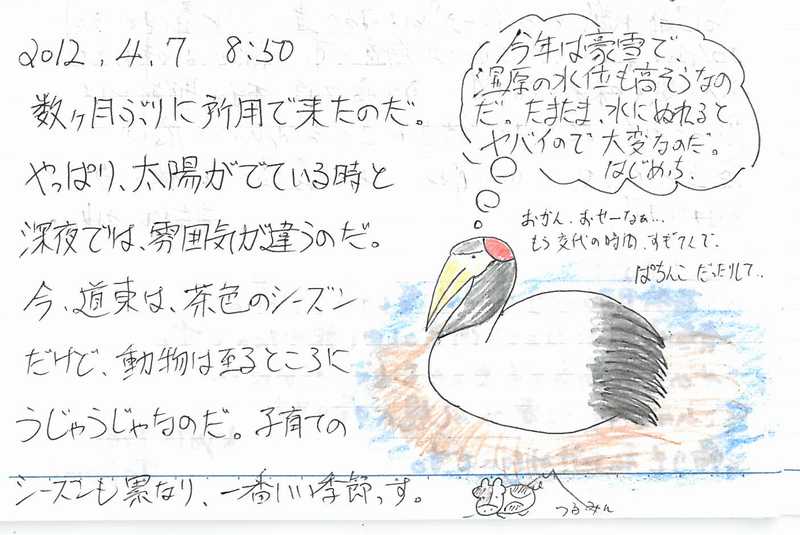 2012.4.7 8:50
数ヶ月ぶりに所用で来たのだ。
やっぱり、太陽がでている時と
深夜では、雰囲気が違うのだ。
今、道東は、茶色のシーズン
だけど、動物は至るところに
うじゃうじゃなのだ。子育ての
シーズンも累なり、一番いい季節っす。
今年は豪雪で、
湿原の水位も高そうなの
だ。たまたま、水にぬれると
ヤバイので大変なのだ。
はじめっち、
おかん、おせーなぁ...
もう交代の時間、すぎてんで、
ぱちんこだったりして..
つるみん